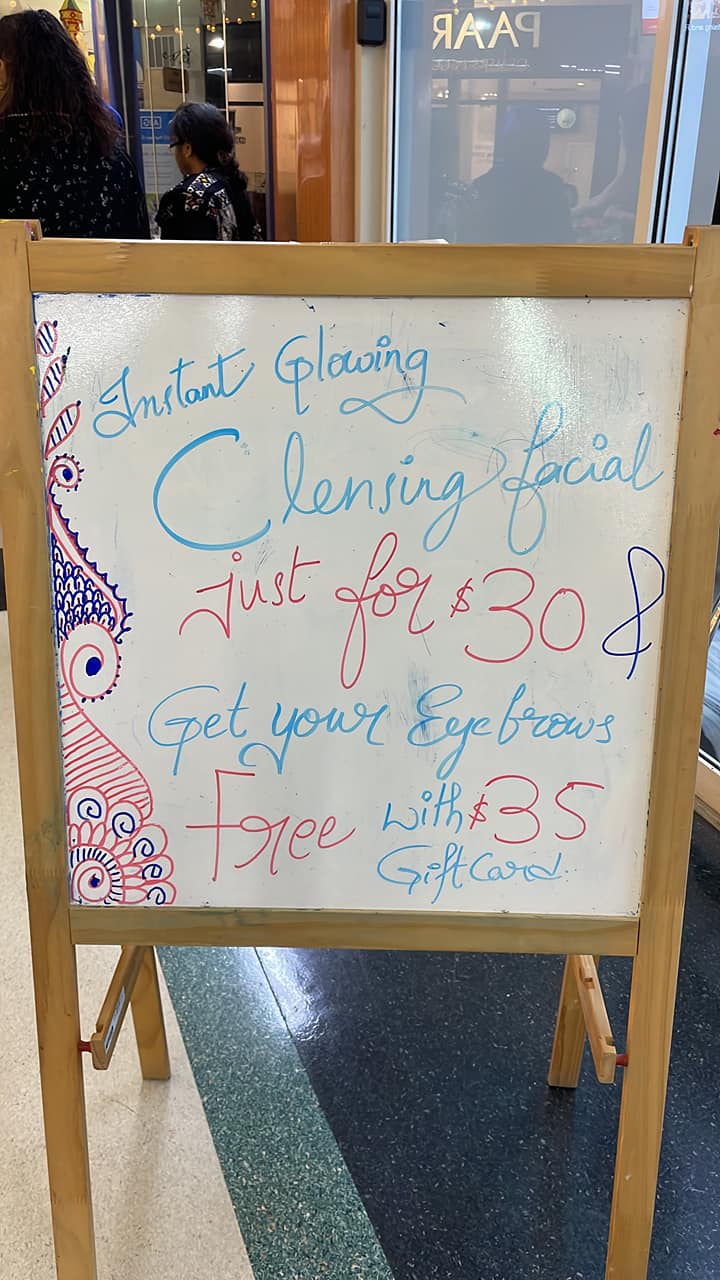 PAAR
Instant Glowing
Clensing facial
just for $30 &
Get your Eyebrows
Free with $35
Gift Card